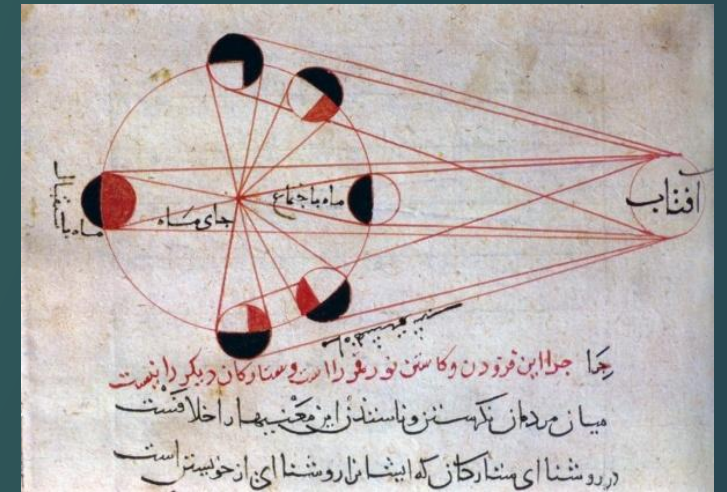 افتاب
ماه باجتماع
جای ماه
ماه باستقبال
چرا جرا این فزودن و کاستن نور قمر راست و ستارکان دیکر را نیست
میان مردمان نکرستن و ناسندن این معنیها را خلافست
در روشنای ستارکان که ایشانرا روشنا ای از خویشتن است